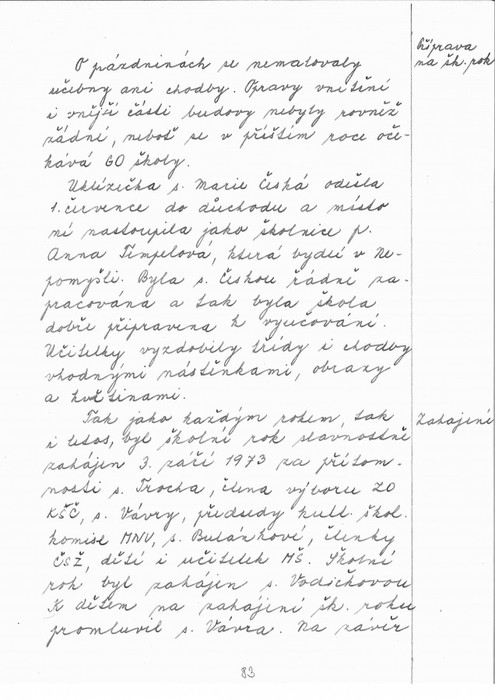 Příprava
na šk. rok
O prázdninách se nemalovaly
učebny ani chodby. Opravy vnitřní
i vnější části budovy nebyly rovněž
žádné, neboť se v příštím roce oče-
kává GO školy.
Uklízečka s. Marie Česká odešla
1. července do důchodu a místo
ní nastoupila jako školnice p.
Anna Timpelová, která bydlí v Ne-
pomyšli. Byla s. Českou řádně za-
pracována a tak byla škola
dobře připravena k vyučování.
Učitelky vyzdobily třídy i chodby
vhodnými nástěnkami, obrazy
a květinami.
Tak jako každým rokem, tak
Zahájení
i letos, byl školní rok slavnostně
zahájen 3. září 1973 za přítom-
nosti s. Trocha, člena výboru ZO
KSČ, s. Vávry, předsedy kult. škol.
komise MNV, s. Bulánkové, členky
ČSŽ, dětí i učitelek MŠ. Školní
rok byl zahájen s. Vodičkovou
K dětem na zahájení šk. roku
promluvil s. Vávra. Na závěr
83